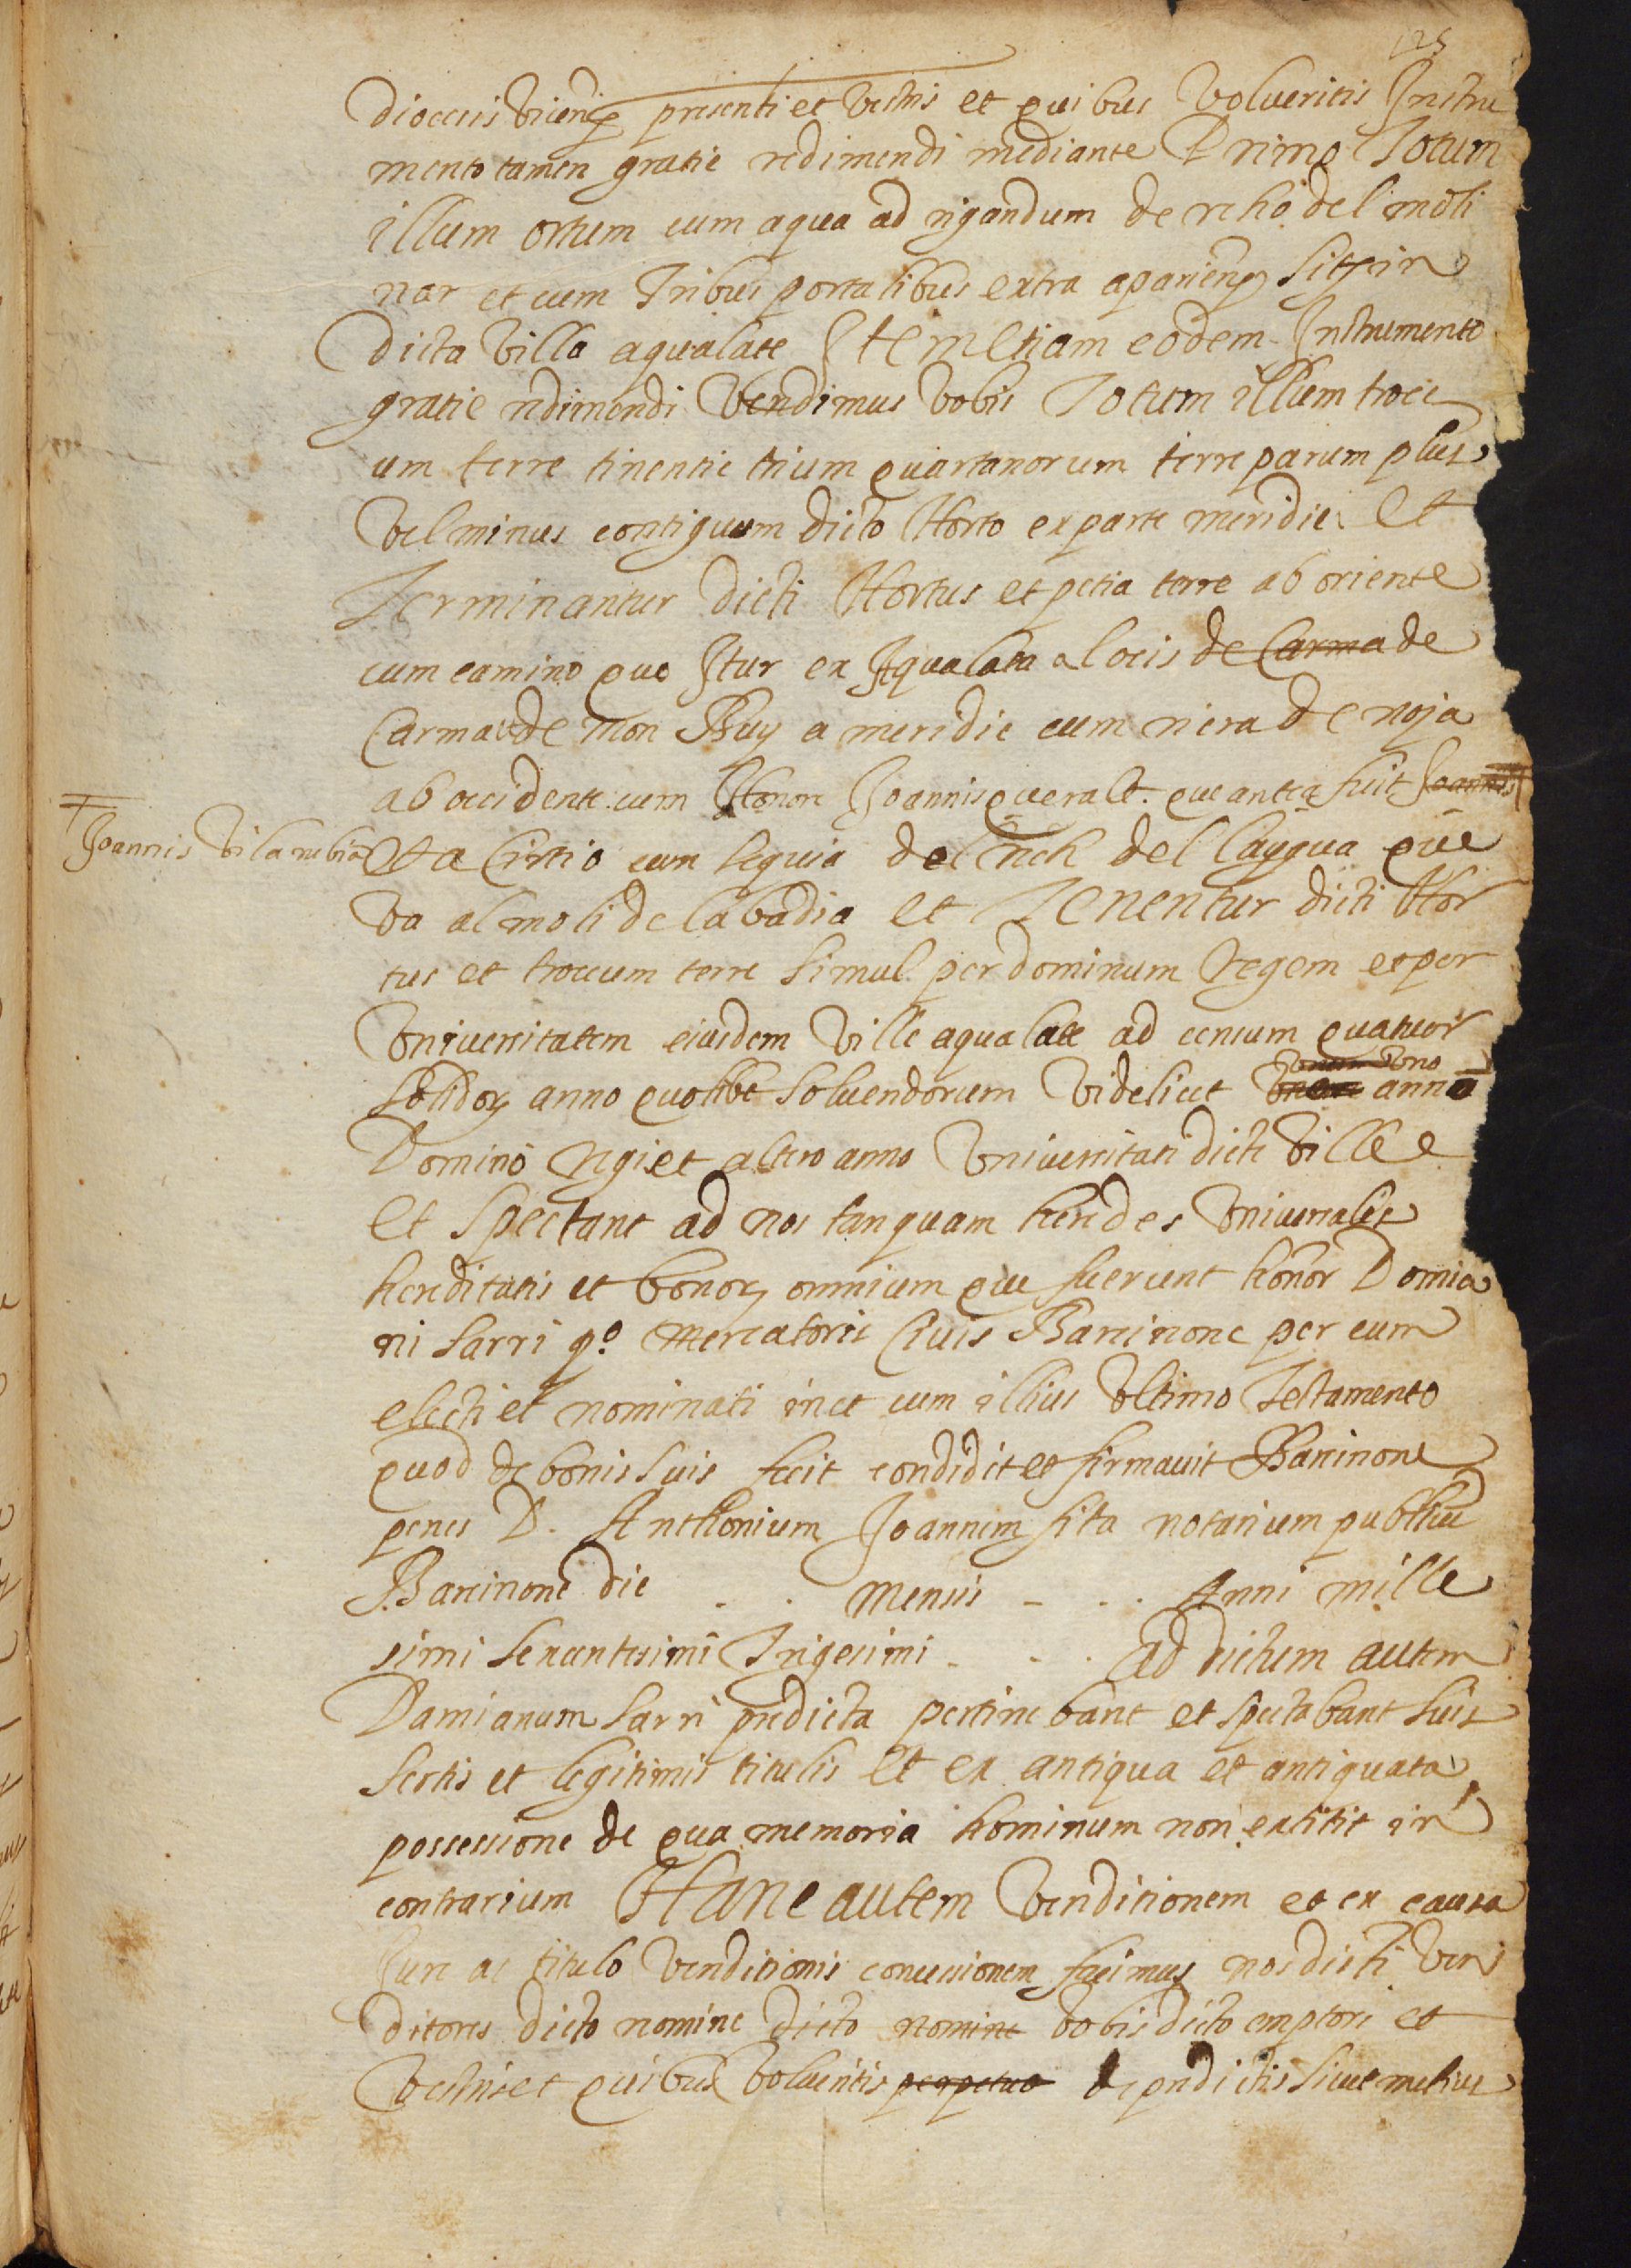 125
diocesis Vicen̄ presenti et vestris et quibus volueritis Instru
mento tamen gratie redimendi mediante Primo Totum
illum ortum cum aqua ad rigandum de recho del moli
nar et cum Tribus portalibus extra aparien̄ sit in
dicta Villa aqualate Item etiam eodem Instrumento
gratie redimendi Vendimus Vobis Totum illum troce
um terre tinentie trium quartanorum terre parum plus
vel minus contiguum dicto Horto ex parte meridiei Et
Terminantur dicti Hortus et petia terre ab oriente
cum camino quo Itur ex Aqualata a locis de Carma de
Carma de Mon Buy a meridie cum riera de noja
ab occidente cum Honore Joannis queralt que antea fuit Joannis
Joannis Vilarubia
Et a Cirtio cum sequia del rech del laygua que
va al moli de la badia et Tenentur dicti Hor
tus et trocium terre simul per dominum Regem et per
Universitatem eiusdem Ville aqualate ad censum quatuor
Unum uno
solidor̄ anno quolibet solvendorum Videlicet anno
Domino Regi et altero anno Universitati dicte Ville
Et spectant ad nos tanquam heredes Universales
hereditatis et bonor̄ omnium que fuerunt honor̄ Domia
ni Sarri qº Mercatoris Civis Barcinone per eum
electi et nominati in et cum illius Ultimo Testamento
quod de bonis suis fecit condidit et firmavit Barcinone
penes D. Anthonium Joannem fita notarium publicū
Barcinone die . . Mensis - . . Anni mille
simi sexcentesimi Trigesimi - . . Ad dictum autem
Damianum Sarri predicta pertinebant et spectabant suis
certis et legitimis titulis Et ex antiqua et antiquata
possessione de qua memoria hominum non extitit in
contrarium Hanc autem Venditionem et ex causa
Jure ac titulo Venditionis concessionem facimus nos dicti Ven
ditores dicto nomine dicto nomine vobis dicto emptori et
Vestris et quibus volueritis perpetuo de predictis sicut melius